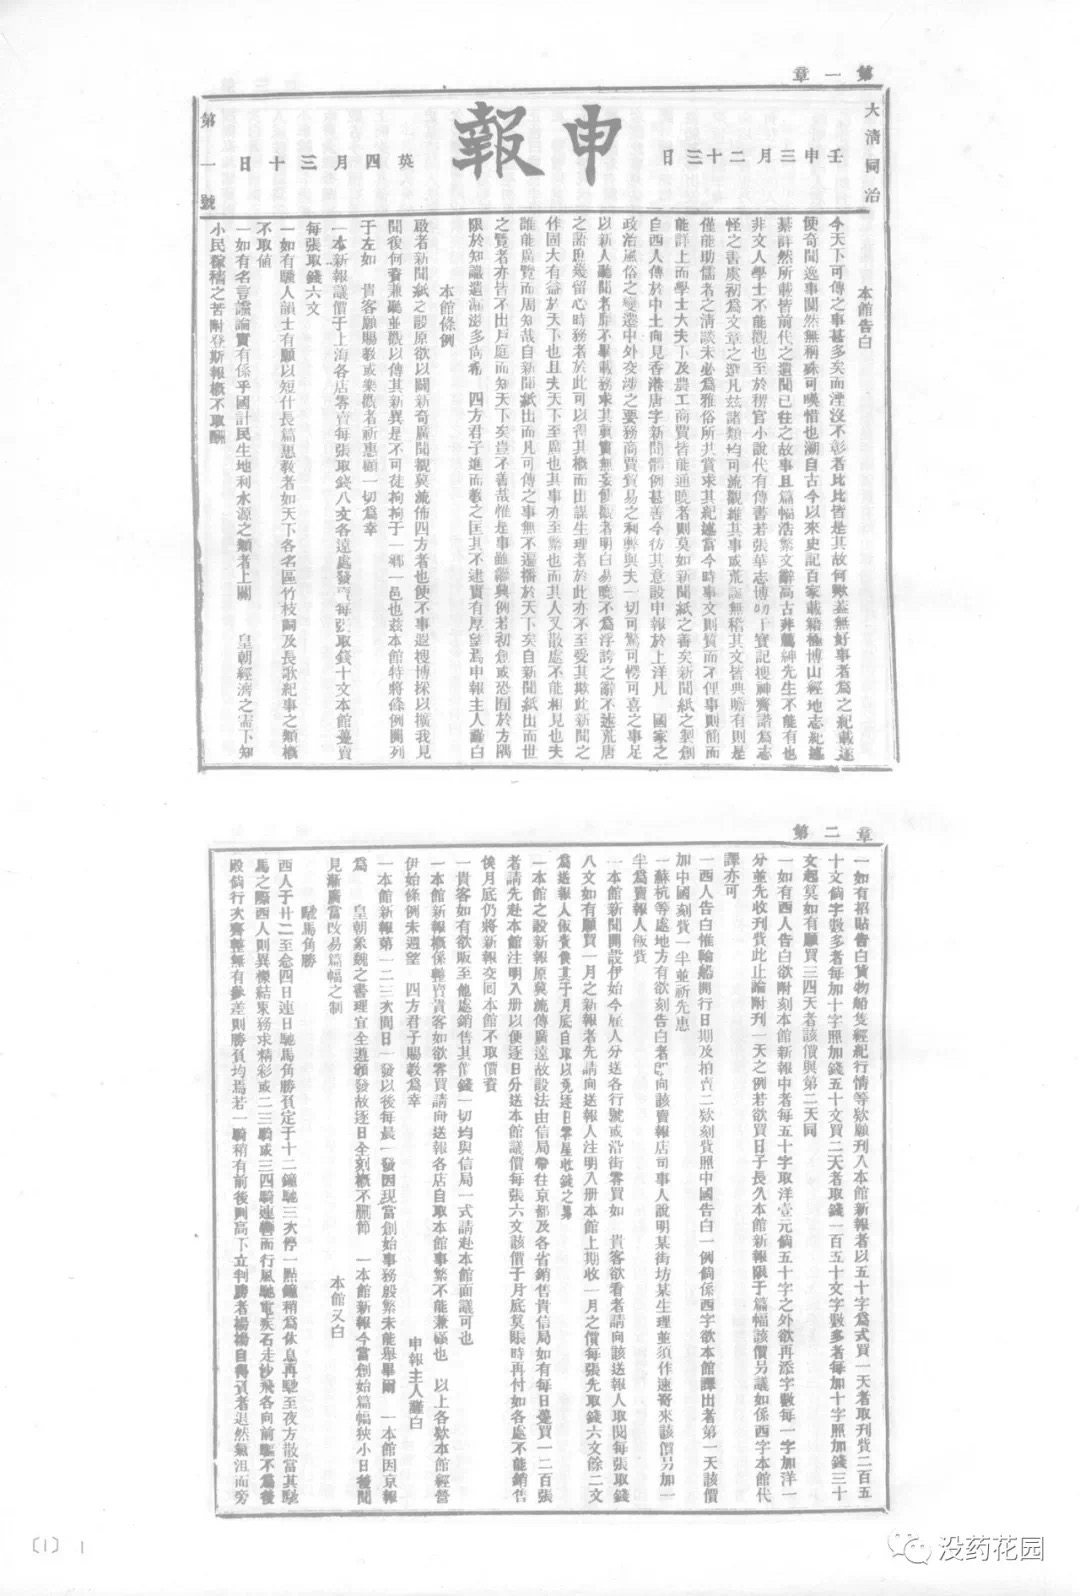 第一章
大清同治
壬申三月二十三日
申報
英四月三十日
第一號
本館告白
今天下可傳之事甚多矣而湮沒不彰者比比皆是其故何歟蓋無好事者為之紀載遂
使奇聞逸事闃然無稱殊可嘆惜也溯自古今以來史記百家載籍極博山經地志紀述
綦詳然所載皆前代之遺聞已往之故事且篇幅浩繁文辭高古非薦紳先生不能有也
非文人學士不能觀也至於稗官小說代有傳書若張華志博物干寶記搜神齊諧為志
怪之書虞初為文章之選凡茲諸類均可流觀維其事或荒誕無稽其文皆典贍有則是
僅能助儒者之清談未必為雅俗所共賞求其紀述當今時事文則質而不俚事則簡而
能詳上而學士大夫下及農工商賈皆能通曉者則莫如新聞紙之善矣新聞紙之製創
自西人傳於中土向見香港唐字新聞體例甚善今仿其意設申報於上洋凡　國家之
政治風俗之變遷中外交涉之要務商賈貿易之利弊與夫一切可驚可愕可喜之事足
以新人聽聞者靡不畢載務求其真實無妄使觀者明白易曉不為浮誇之辭不述荒唐
之語庶幾留心時務者於此可以得其概而出謀生理者於此亦不至受其欺此新聞之
作固大有益於天下也且夫天下至廣也其事亦至繁也而其人又散處不能相見也夫
誰能廣覽而周知哉自新聞紙出而凡可傳之事無不遍播於天下矣自新聞紙出而世
之覽者亦皆不出戶庭而知天下矣豈不善哉惟是事雖繼興例若初創或恐囿於方隅
限於知識遺漏滋多尚希　四方君子進而教之匡其不逮實有厚望焉申報主人謹白
本館條例
啟者新聞紙之設原欲以闢新奇廣聞觀冀流佈四方者也使不事遐搜博採以擴我見
聞復何資兼聽並觀以傳其新異是不可徒拘拘于一鄉一邑也茲本館特將條例開列
于左如　貴客願賜教或樂觀者祈惠顧一切為幸
一本新報議價于上海各店零賣每張取錢八文各遠處發賣每張取錢十文本館躉賣
每張取錢六文
一如有騷人韻士有願以短什長篇惠教者如天下各名區竹枝詞及長歌紀事之類概
不取值
一如有名言讜論實有係乎國計民生地利水源之類者上關　皇朝經濟之需下知
小民稼穡之苦附登斯報概不取酬
第二章
一如有招貼告白貨物船隻經紀行情等欵願刊入本館新報者以五十字為式買一天者取刊貲二百五
十文倘字數多者每加十字照加錢五十文買二天者取錢一百五十文字數多者每加十字照加錢三十
文起算如有願買三四天者該價與第二天同
一如有西人告白欲附刻本館新報中者每五十字取洋壹元倘五十字之外欲再添字數每一字加洋一
分並先收刊貲此止論附刊一天之例若欲買日子長久本館新報限于篇幅該價另議如係西字本館代
譯亦可
一西人告白惟輪船開行日期及拍賣二欵刻貲照中國告白一例倘係西字欲本館譯出者第一天該價
加中國刻貲一半並祈先惠
一蘇杭等處地方有欲刻告白者即向該賣報店司事人說明某街坊某生理並須作速寄來該價另加一
半為賣報人飯貲
一本館新聞開設伊始今雇人分送各行號或沿街零買如　貴客欲看者請向該送報人取閱每張取錢
八文如有願買一月之新報者先請向送報人注明入册本館上期收一月之價每張先取錢六文餘二文
為送報人飯貲俟其于月底自取以免逐日零星收錢之勞
一本館之設新報原冀流傳廣遠故設法由信局帶往京都及各省銷售貴信局如有每日躉買一二百張
者請先赴本館注明入册以便逐日分送本館議價每張六文該價于月底莫賬時再付如各處不能銷售
俟月底仍將新報交回本館不取價資
一貴客如有欲販至他處銷售其價錢一切均與信局一式請赴本館面議可也
一本館新報概係躉賣貴客如欲零買請向送報各店自取本館事繁不能兼顧也　以上各欵本館經營
伊始條例未週望　四方君子賜教為幸　申報主人謹白
一本館新報第一二三次間日一發以後每晨一發因現當創始事務殷繁未能舉畢爾　一本館因京報
為　皇朝象魏之書理宜全遵頒發故逐日全刻概不刪節　一本館新報今當創始篇幅狹小日後聞
見漸廣當改易篇幅之制　本館又白
馳馬角勝
西人于廿二至念四日連日馳馬角勝負定于十二鐘馳三次停一點鐘稍為休息再馳至夜方散當其馳
馬之際西人則異樣結束務求精彩或二三騎或三四騎連轡而行風馳電疾石走沙飛各向前驅不為後
殿倘行次齊整無有參差則勝負均焉若一騎稍有前後則高下立判勝者揚揚自得負者退然氣沮而旁
〔1〕 1
没药花园